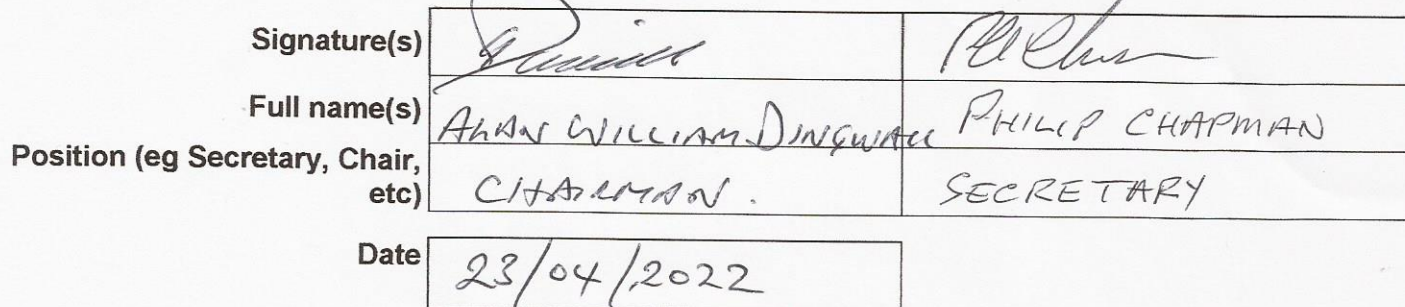 Signature(s)
Full name(s) ALAN WILLIAM DINGWALL PHILIP CHAPMAN
Position (eg Secretary, Chair,
etc) CHAIRMAN. SECRETARY
Date 23/04/2022